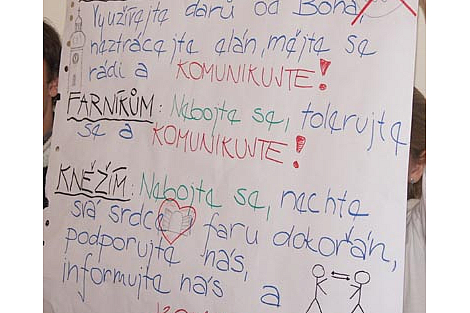 Využívejte darů od Boha,
neztrácejte elán, mějte se
rádi a KOMUNIKUJTE!
FARNÍKŮM: Nebojte se, tolerujte
se a KOMUNIKUJTE!
KNĚŽÍM: Nebojte se, nechte
svá srdce faru dokořán,
podporujte nás,
informujte nás a